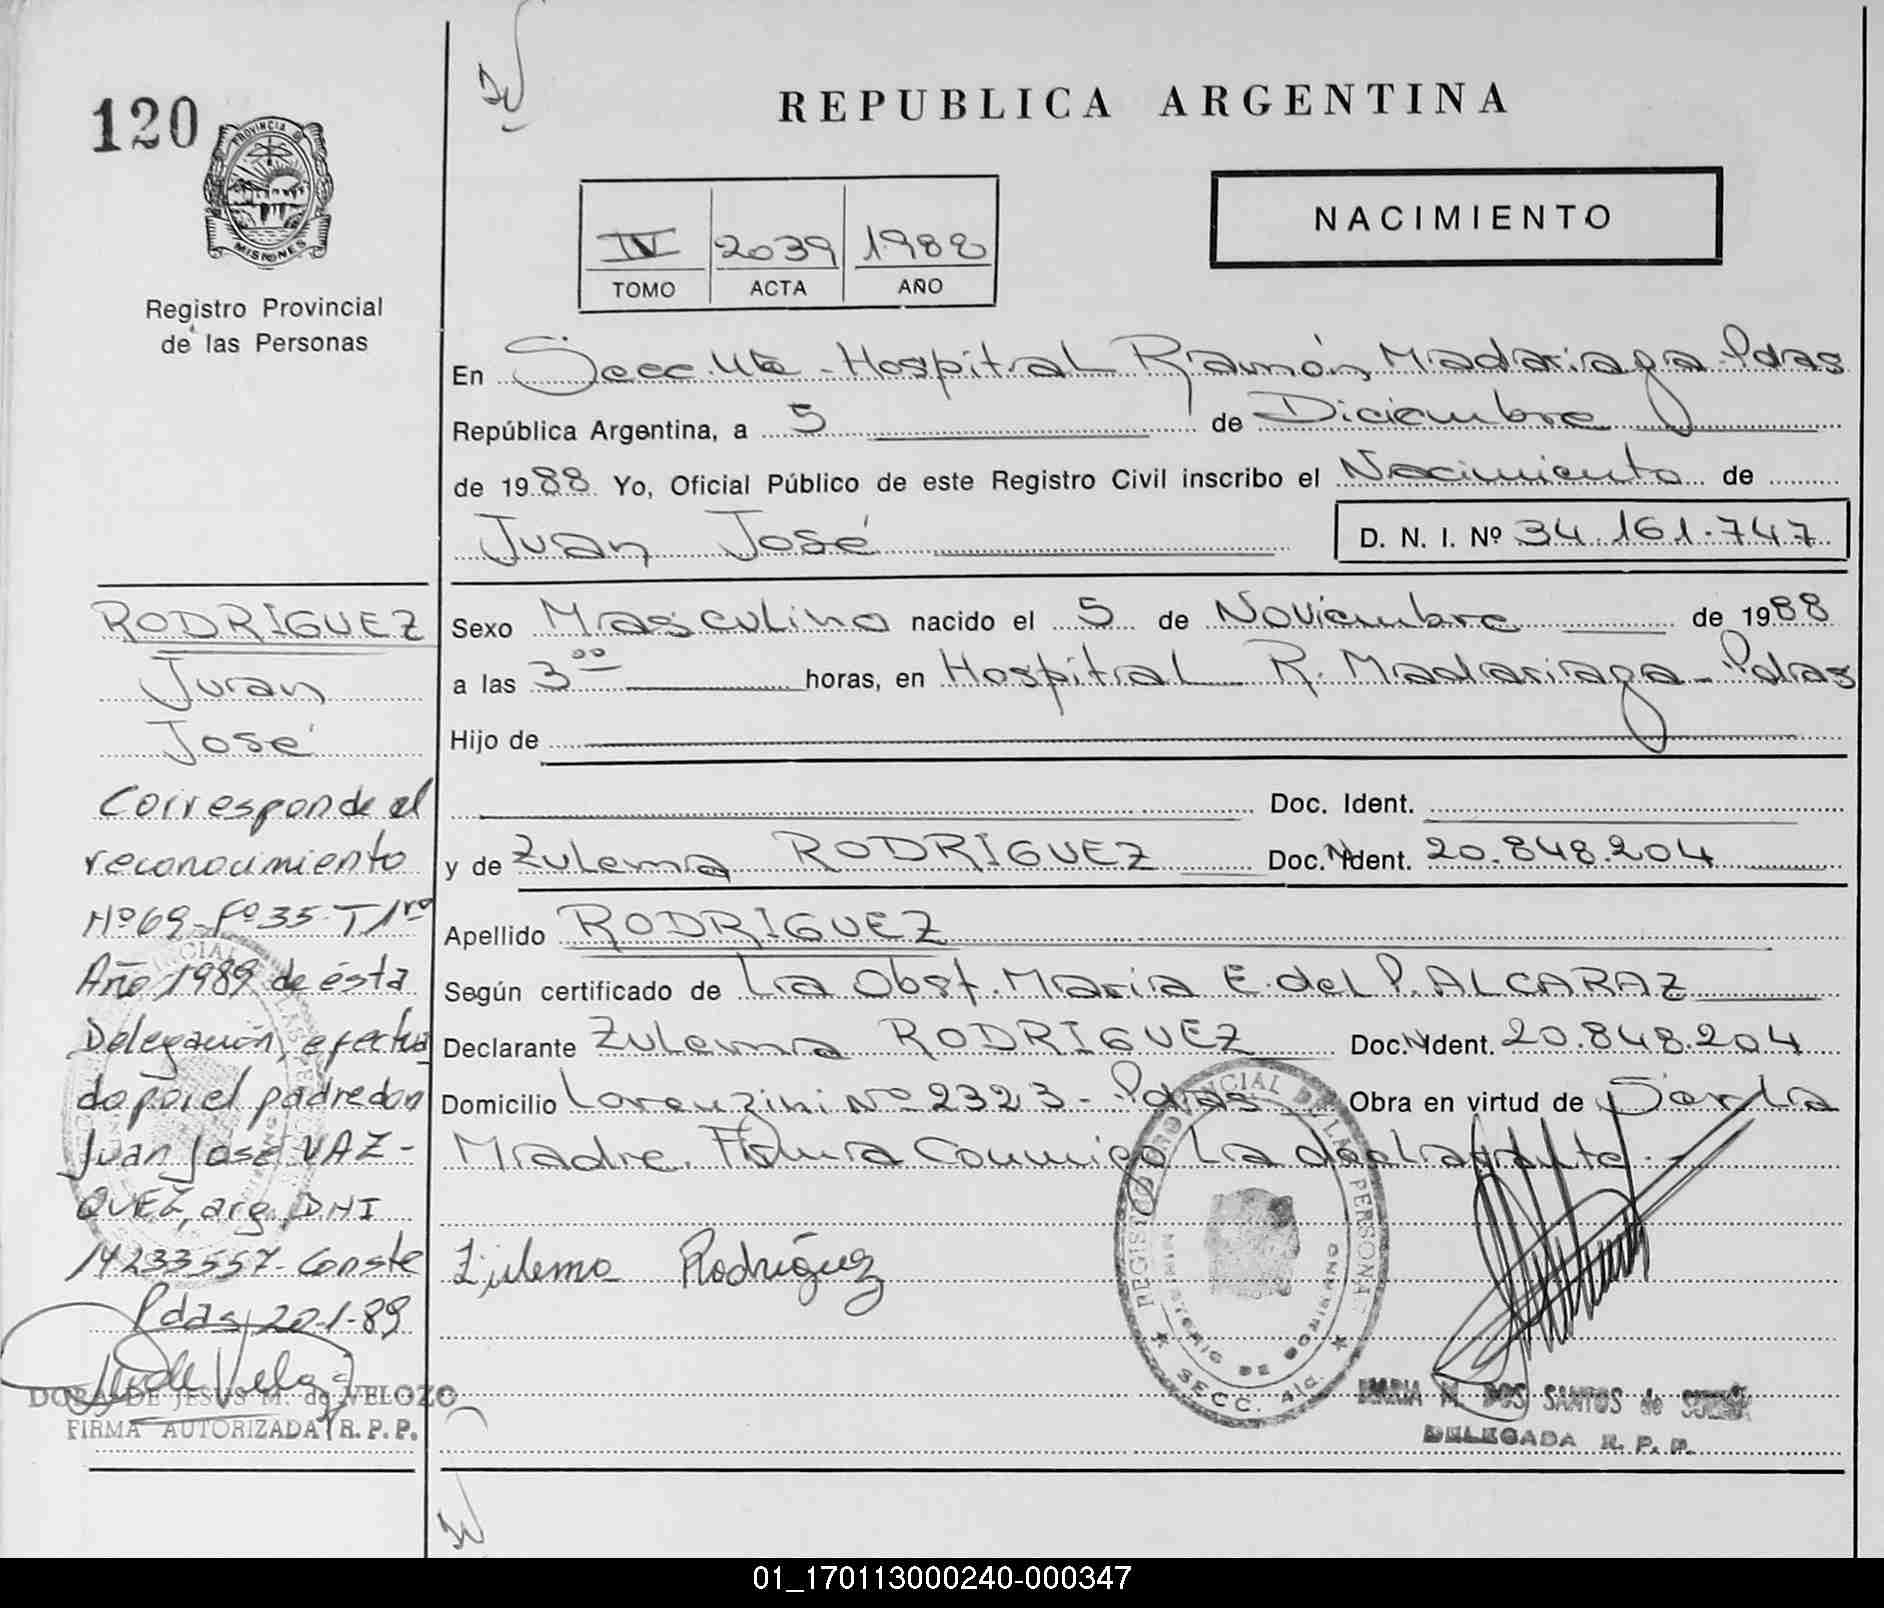 120
PROVINCIA DE
MISIONES
Registro Provincial
de las Personas
REPUBLICA ARGENTINA
NACIMIENTO
IV 2039 1988
TOMO ACTA AÑO
En Secc. 4ta - Hospital Ramón Madariaga - Pdas
República Argentina, a 5 de Diciembre
de 1988 Yo, Oficial Público de este Registro Civil inscribo el Nacimiento de
Juan José D. N. I. Nº 34.161.747
Sexo Masculino nacido el 5 de Noviembre de 1988
a las 3⁰⁰ horas, en Hospital R. Madariaga - Pdas
Hijo de
Doc. Ident.
y de Zulema RODRIGUEZ Doc. Ident. 20.848.204
Apellido RODRIGUEZ
Según certificado de La Obst. María E. del P. ALCARAZ
Declarante Zulema RODRIGUEZ Doc. Ident. 20.848.204
Domicilio Lorenzini Nº 2323 - Pdas Obra en virtud de Ser La
Madre. Firma Conmigo La declarante.-
Zulema Rodríguez
REGISTRO PROVINCIAL DE LAS PERSONAS
MINISTERIO DE GOBIERNO
SECC. 4ta.
MARIA M. DOS SANTOS de
DELEGADA R. P. P.
RODRIGUEZ
Juan
José
Corresponde al
reconocimiento
Nº 69 - Fº 35 - T 1ro
Año 1989 de ésta
Delegación, efectua
do por el padre don
Juan José VAZ-
QUEZ, arg. DNI
14233557- Conste
Pdas, 20-1-89
DORA DE JESUS M. de VELOZO
FIRMA AUTORIZADA R. P. P.
01_170113000240-000347